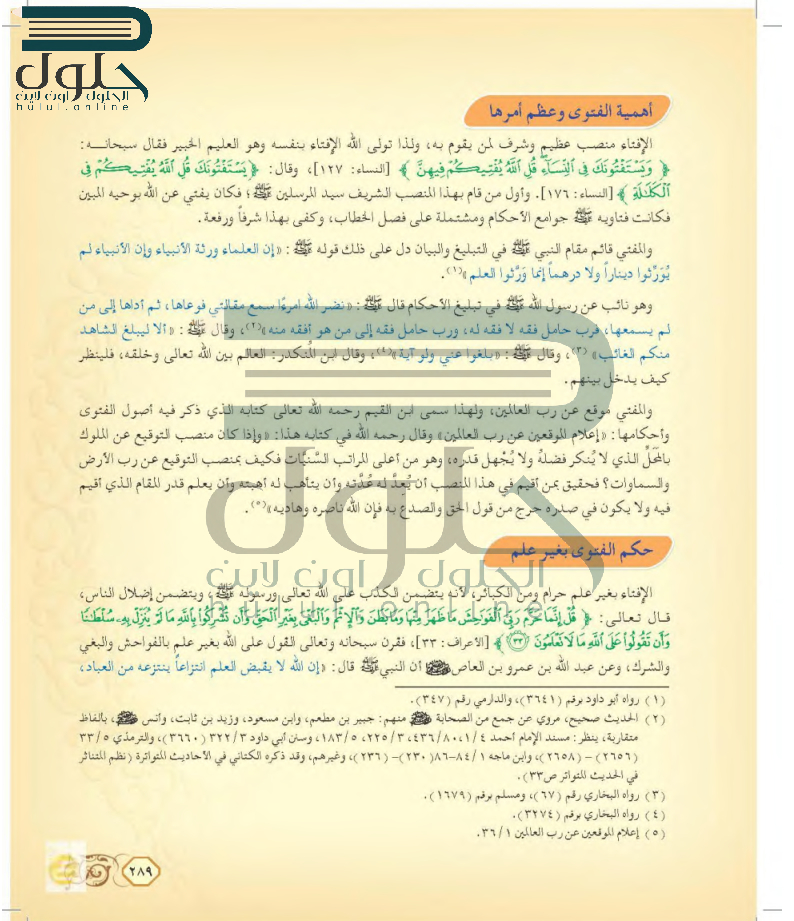 حلول
الحلول اون لاين
hulul.online
أهمية الفتوى وعظم أمرها
الإفتاء منصب عظيم وشرف لمن يقوم به، ولذا تولى الله الإفتاء بنفسه وهو العليم الخبير فقال سبحانــه:
﴿ وَيَسْتَفْتُونَكَ فِي ٱلنِّسَآءِ قُلِ ٱللَّهُ يُفْتِيكُمْ فِيهِنَّ ﴾ [النساء: ١٢٧]، وقال: ﴿ يَسْتَفْتُونَكَ قُلِ ٱللَّهُ يُفْتِيكُمْ فِي
ٱلْكَلَٰلَةِ ﴾ [النساء: ١٧٦]. وأول من قام بهذا المنصب الشريف سيد المرسلين ﷺ؛ فكان يفتي عن الله بوحيه المبين
فكانت فتاويه ﷺ جوامع الأحكام ومشتملة على فصل الخطاب، وكفى بهذا شرفاً ورفعة.
والمفتي قائم مقام النبي ﷺ في التبليغ والبيان دل على ذلك قوله ﷺ: «إن العلماء ورثة الأنبياء وإن الأنبياء لم
يُوَرِّثوا ديناراً ولا درهماً إنما وَرَّثوا العلم»(١).
وهو نائب عن رسول الله ﷺ في تبليغ الأحكام قال ﷺ: «نضر الله امرءًا سمع مقالتي فوعاها، ثم أداها إلى من
لم يسمعها، فرب حامل فقه لا فقه له، ورب حامل فقه إلى من هو أفقه منه»(٢)، وقال ﷺ: «ألا ليبلغ الشاهد
منكم الغائب» (٣)، وقال ﷺ: «بلغوا عني ولو آية»(٤)، وقال ابن المُنكدر: العالم بين الله تعالى وخلقه، فلينظر
كيف يدخل بينهم.
والمفتي موقع عن رب العالمين، ولهذا سمى ابن القيم رحمه الله تعالى كتابه الذي ذكر فيه أصول الفتوى
وأحكامها: «إعلام الموقعين عن رب العالمين» وقال رحمه الله في كتابه هذا: «وإذا كان منصب التوقيع عن الملوك
بالمَحَلِّ الذي لا يُنكر فضلهُ ولا يُجْهل قدره، وهو من أعلى المراتب السَّنيَّات فكيف بمنصب التوقيع عن رب الأرض
والسماوات؟ فحقيق بمن أقيم في هذا المنصب أن يُعِدَّ له عُدَّته وأن يتأهب له أهبته وأن يعلم قدر المقام الذي أقيم
فيه ولا يكون في صدره حرج من قول الحق والصدع به فإن الله ناصره وهاديه»(٥).
حكم الفتوى بغير علم
الإفتاء بغير علم حرام ومن الكبائر، لأنه يتضمن الكذب على الله تعالى ورسوله ﷺ، ويتضمن إضلال الناس،
قال تعالى: ﴿ قُلْ إِنَّمَا حَرَّمَ رَبِّيَ ٱلْفَوَٰحِشَ مَا ظَهَرَ مِنْهَا وَمَا بَطَنَ وَٱلْإِثْمَ وَٱلْبَغْيَ بِغَيْرِ ٱلْحَقِّ وَأَن تُشْرِكُوا۟ بِٱللَّهِ مَا لَمْ يُنَزِّلْ بِهِۦ سُلْطَٰنًا
وَأَن تَقُولُوا۟ عَلَى ٱللَّهِ مَا لَا تَعْلَمُونَ ٣٣ ﴾ [الأعراف: ٣٣]، فقرن سبحانه وتعالى القول على الله بغير علم بالفواحش والبغي
والشرك، وعن عبد الله بن عمرو بن العاص أن النبي ﷺ قال: «إن الله لا يقبض العلم انتزاعاً ينتزعه من العباد،
(١) رواه أبو داود برقم (٣٦٤١)، والدارمي رقم (٣٤٧).
(٢) الحديث صحيح، مروي عن جمع من الصحابة منهم: جبير بن مطعم، وابن مسعود، وزيد بن ثابت، وأنس، بالفاظ
متقاربة، ينظر: مسند الإمام أحمد ٤/ ٨٠، ١/ ٤٣٦، ٣/ ٢٢٥، ٥/ ١٨٣، وسنن أبي داود ٣/ ٣٢٢ (٣٦٦٠)، والترمذي ٥/ ٣٣
(٢٦٥٦) – (٢٦٥٨)، وابن ماجه ١/ ٨٤-٨٦ (٢٣٠) – (٢٣٦)، وغيرهم، وقد ذكره الكتاني في الأحاديث المتواترة (نظم المتناثر
في الحديث المتواتر ص٣٣).
(٣) رواه البخاري رقم (٦٧)، ومسلم برقم (١٦٧٩).
(٤) رواه البخاري برقم (٣٢٧٤).
(٥) إعلام الموقعين عن رب العالمين ١/ ٣٦.
٢٨٩
حلول
الحلول اون لاين
hulul.online